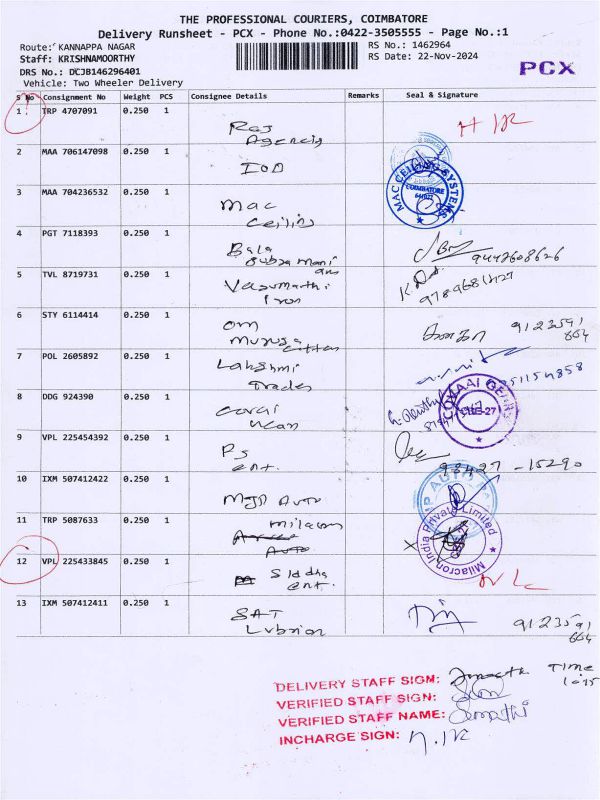 THE PROFESSIONAL COURIERS, COIMBATORE
Delivery Runsheet - PCX - Phone No.:0422-3505555 - Page No.:1
Route: KANNAPPA NAGAR
RS No.: 1462964
Staff: KRISHNAMOORTHY
RS Date: 22-Nov-2024
DRS No.: DCJB146296401
PCX
Vehicle: Two Wheeler Delivery
S No Consignment No Weight PCS Consignee Details Remarks Seal & Signature
1 TRP 4707091 0.250 1
Raj
Agencis
2 MAA 706147098 0.250 1
IOD
3 MAA 704236532 0.250 1
Mac
Ceiling
MAC CEILING SYSTEMS
COIMBATORE
4 PGT 7118393 0.250 1
Bala
Subramani
9442608626
5 TVL 8719731 0.250 1
Vasumathi
Iron
6 STY 6114414 0.250 1
Om
Muruga
9123591
664
7 POL 2605892 0.250 1
Lakshmi
Trades
8 DDG 924390 0.250 1
COVAAI GEARS
9 VPL 225454392 0.250 1
PS
Ent.
98427 - 15290
10 IXM 507412422 0.250 1
MJP Auto
11 TRP 5087633 0.250 1
Milacron
Milacron India Private Limited
12 VPL 225433845 0.250 1
Siddha
Ent.
13 IXM 507412411 0.250 1
SAT
9123591
664
DELIVERY STAFF SIGM:
Time
VERIFIED STAFF SIGN:
VERIFIED STAFF NAME:
INCHARGE SIGN: